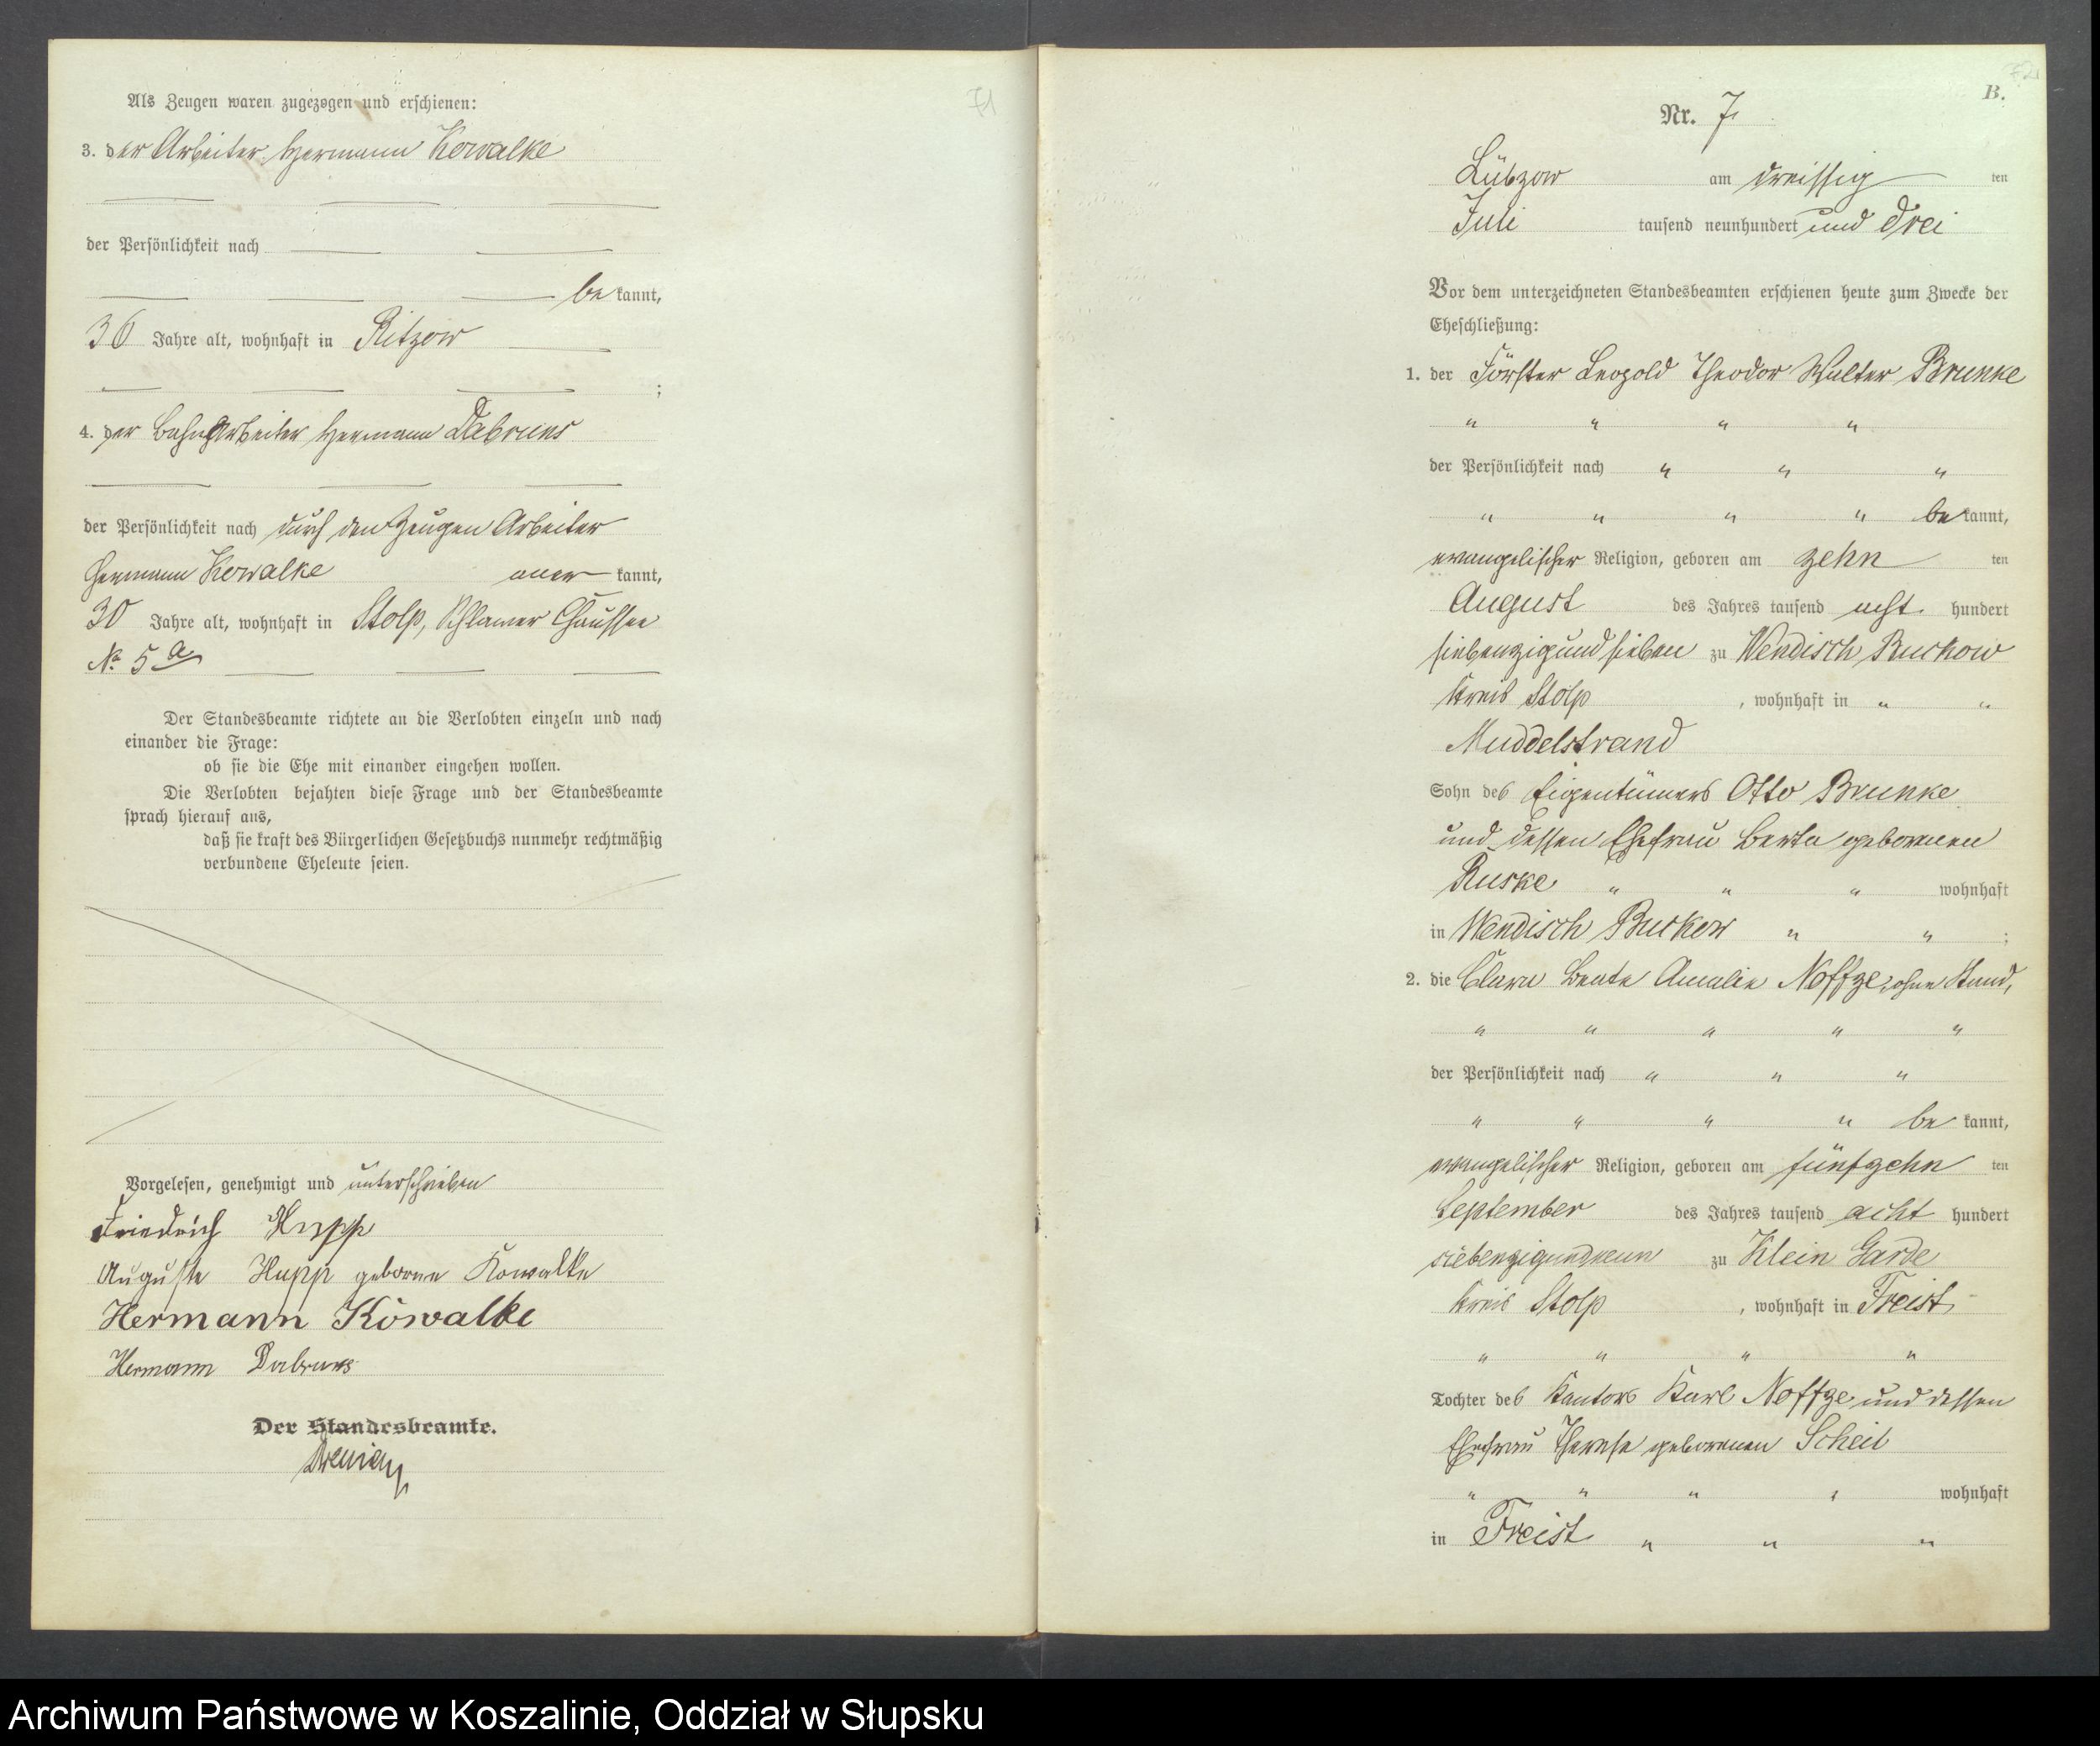 Als Zeugen waren zugezogen und erschienen:
3. der Arbeiter Hermann Kowalke
der Persönlichkeit nach
be kannt,
36 Jahre alt, wohnhaft in Ritzow
;
4. der Bahnarbeiter Hermann Dabruns
der Persönlichkeit nach durch den Zeugen Arbeiter
Hermann Kowalke aner kannt,
30 Jahre alt, wohnhaft in Stolp, Schlawer Chaussee
№ 5 a
Der Standesbeamte richtete an die Verlobten einzeln und nach
einander die Frage:
ob sie die Ehe mit einander eingehen wollen.
Die Verlobten bejahten diese Frage und der Standesbeamte
sprach hierauf aus,
daß sie kraft des Bürgerlichen Gesetzbuchs nunmehr rechtmäßig
verbundene Eheleute seien.
Vorgelesen, genehmigt und unterschrieben
Friedrich Hupp
Auguste Hupp geborene Kowalke
Hermann Kowalke
Hermann Dabruns
Der Standesbeamte.
71
72
B.
Nr. 7
Lübzow am dreissig ten
Juli tausend neunhundert und drei
Vor dem unterzeichneten Standesbeamten erschienen heute zum Zwecke der
Eheschließung:
1. der Förster Leopold Theodor Walter Brunke
" " " "
der Persönlichkeit nach " " "
" " " " be kannt,
evangelischer Religion, geboren am zehn ten
August des Jahres tausend acht hundert
siebenzigundsieben zu Wendisch Buckow
Kreis Stolp , wohnhaft in " "
Muddelstrand
Sohn des Eigentümers Otto Brunke
und dessen Ehefrau Berta geborenen
Ruske " " " wohnhaft
in Wendisch Buckow " " ;
2. die Clara Beate Amalie Noffze, ohne Stand,
" " " " "
der Persönlichkeit nach " " "
" " " " be kannt,
evangelischer Religion, geboren am fünfzehn ten
September des Jahres tausend acht hundert
siebenzigundneun zu Klein Garde
Kreis Stolp , wohnhaft in Freist
" " " "
Tochter des Kantors Karl Noffze und dessen
Ehefrau Therese geborenen Scheil
" " " " wohnhaft
in Freist " " "
Archiwum Państwowe w Koszalinie, Oddział w Słupsku